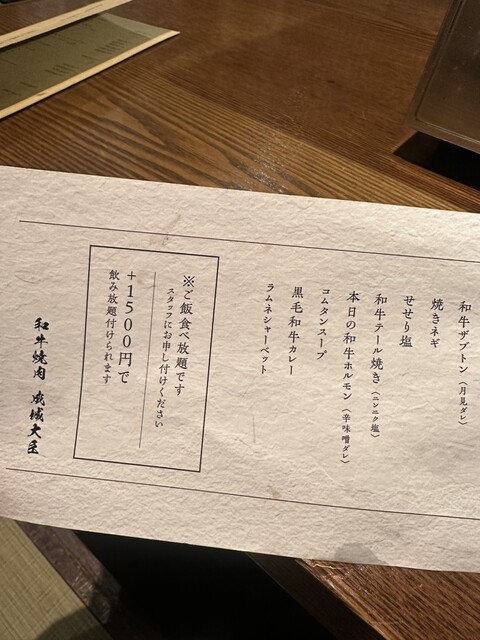 和牛ザブトン（月見ダレ）
焼きネギ
せせり塩
和牛テール焼き（ニンニク塩）
本日の和牛ホルモン（辛味噌ダレ）
コムタンスープ
黒毛和牛カレー
ラムネシャーベット
※ご飯食べ放題です
スタッフにお申し付けください
+1500円で
飲み放題付けられます
和牛焼肉 成城大王